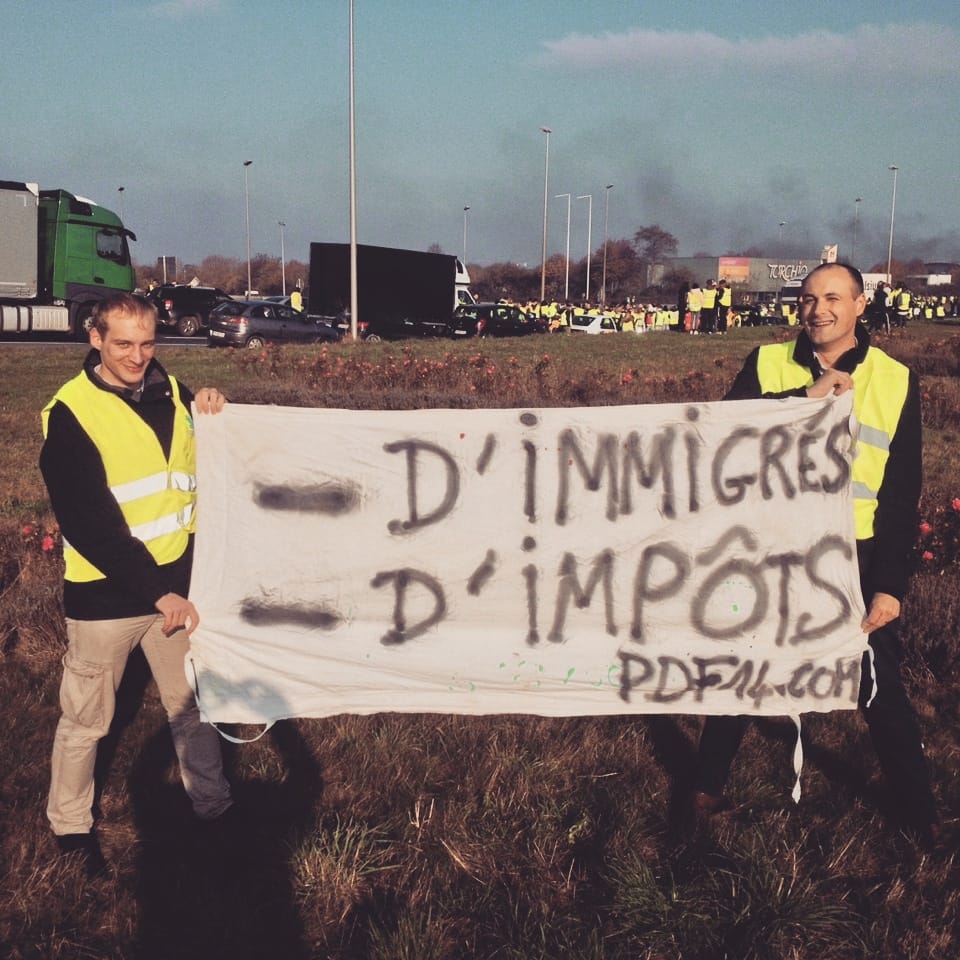 - D'iMMiGRÉS
- D'iMPÔTS
PDF14.COM